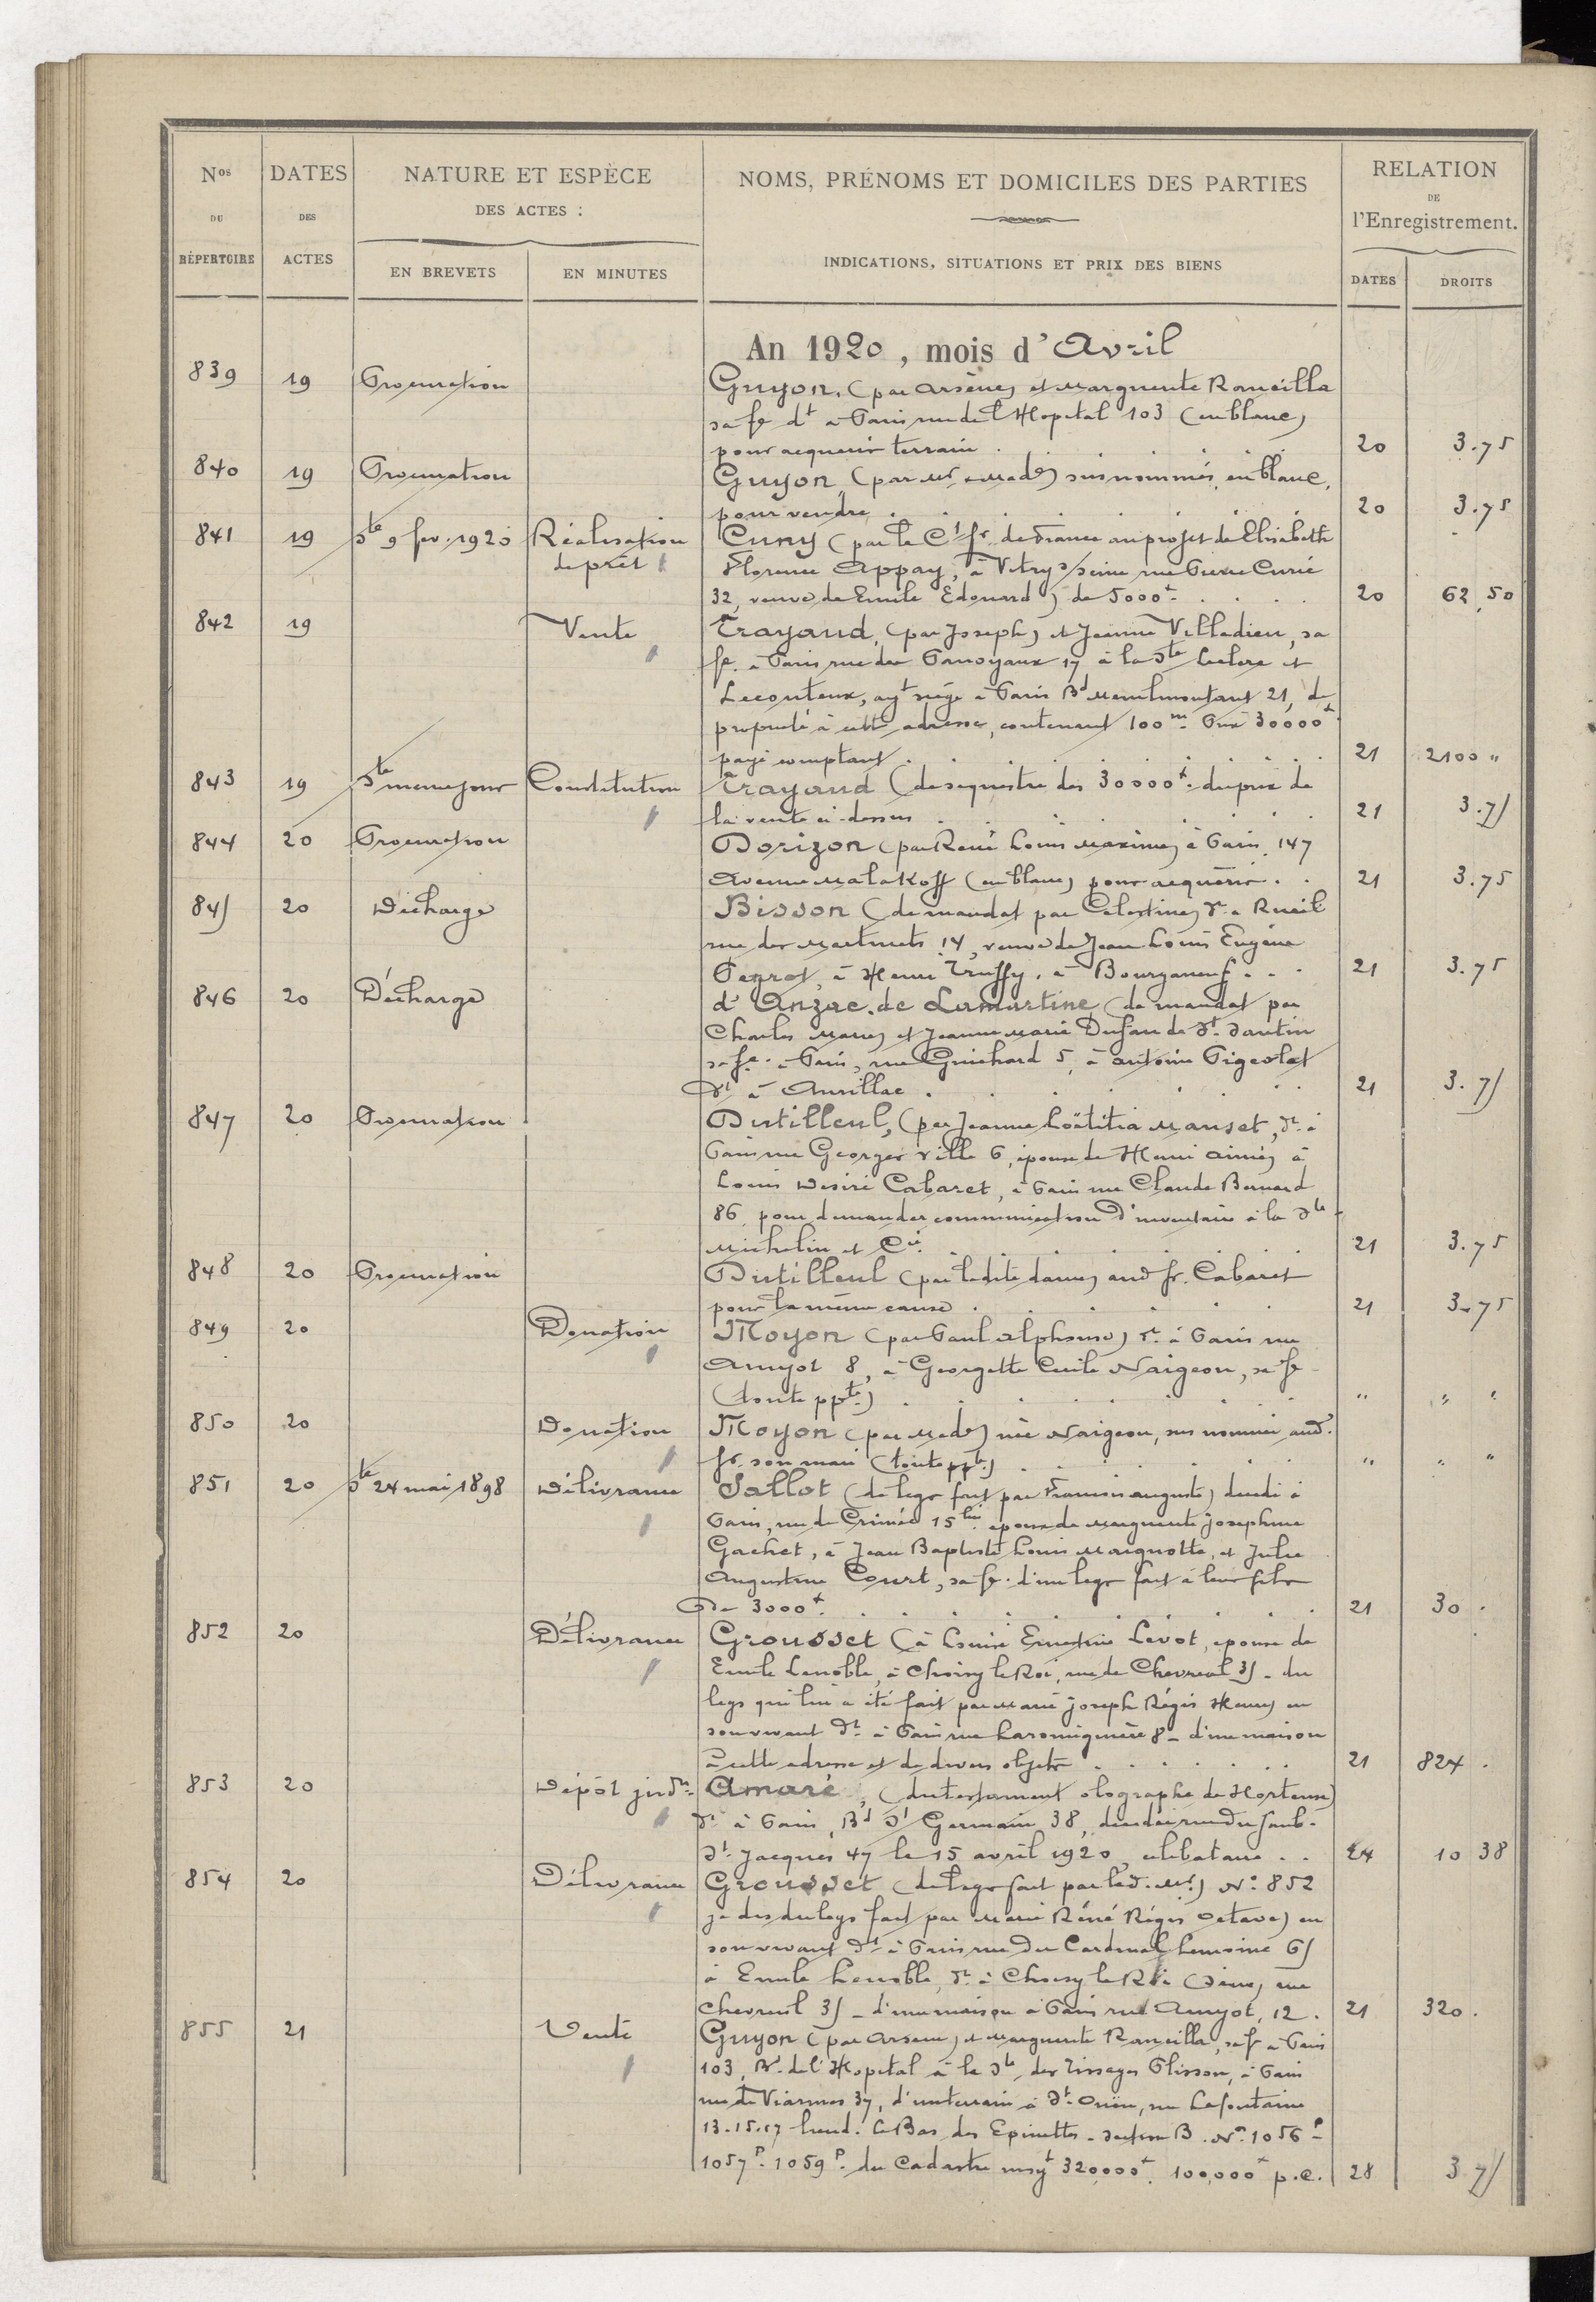 Nos DU RÉPERTOIRE
DATES DES ACTES
NATURE ET ESPÈCE
DES ACTES :
EN BREVETS
EN MINUTES
NOMS, PRÉNOMS ET DOMICILES DES PARTIES
INDICATIONS, SITUATIONS ET PRIX DES BIENS
RELATION
DE
l'Enregistrement.
DATES
DROITS
An 1920, mois d'Avril
839 19 Procuration Guyon, (par Arsène) et Marguerite Ranvilla
sa fe dt à Paris rue de l'Hopital 103 (en blanc)
pour acquérir terrain . 20 3.75
840 19 Procuration Guyon, (par Mr & Made) susnommés, en blanc,
pour vendre . 20 3.75
841 19 Ste 9 fev. 1920 Réalisation Cuny (par le Ct fr. de France au projet de Elisabeth
de prêt Florence Appay, à Vitry s/ Seine rue Pierre Curie
32, veuve de Emile Edouard) de 5000f . . . . 20 62,50
842 19 Vente Trayaud, (par Joseph) et Jeanne Villedieu, sa
fe. à Paris rue des Panoyaux 17 à la Sté Leclere et
Lecouteux, ayt siège à Paris Bd Menilmontant 21, de
propriété à cette adresse, contenant 100m. Prix 30000f
payé comptant . 21 2100 "
843 19 Ste meme jour Constitution Trayaud (de sequestre des 30000f. du prix de
la vente ci-dessus . 21 3.75
844 20 Procuration Dorizon (par René Louis Maxime) à Paris, 147
Avenue Malakoff (en blanc) pour acquérir . . 21 3.75
845 20 Décharge Bisson (de mandat par Celestine) dt à Rueil
rue des Martinets 14, veuve de Jean Louis Eugène
à Henri Truffy, à Bourganeuf . . . 21 3.75
846 20 Décharge d'Anzac de Lamartine (de mandat par
Charles Marie) et Jeanne Marie Dufau de St.
sa fe. à Paris, rue Guichard 5, à Antoine Pigeolat
dt à Aurillac . 21 3.75
847 20 Procuration Dutilleul, (par Jeanne Loëtitia Manset, dt. à
Paris rue Georges Ville 6, épouse de Henri Aimé) à
Louis Désiré Cabaret, à Paris rue Claude Bernard
86, pour demander communication d'inventaire à la Sté
Michelin et Cie. 21 3.75
848 20 Procuration Dutilleul (par ladite dame) aud. sr. Cabaret
pour la même cause . 21 3.75
849 20 Donation Moyon (par Paul Alphonse) dt. à Paris rue
Amyot 8, à Georgette Cecile Naigeon, sa fe
(toute ppté) . " " "
850 20 Donation Moyon (par Made) née Naigeon, sus nommée aud.
sr. son mari (toute ppté) . " " "
851 20 Ste 24 mai 1898 Délivrance Sallot (de legs fait par François Auguste) décédé à
Paris, rue de Crimée 15 bis. époux de Marguerite Josephine
Gachet, à Jean Baptiste Louis Marquotte, et Julie
Augustine Court, sa fe. d'un legs fait à leur fils
De 3000f. 21 30 .
852 20 Délivrance Grousset (à Louise Ernestine Levot, épouse de
Emile Lenoble, à Choisy le Roi, rue de Chevreul 35 - du
legs qui lui a été fait par Marie Joseph Régis Henry en
son vivant dt. à Paris rue Laromiguière 8 - d'une maison
à cette adresse et de divers objets . . . 21 824 .
853 20 Dépôt judre. Amaré, (du testament olographe de Hortense)
dt. à Paris, Bd St Germain 38, décédée rue du faub.
St. Jacques 47 le 15 avril 1920, célibataire . . 24 10 38
854 20 Délivrance Grousset (de legs fait par led. Mr.) No. 852
ci dessus du legs fait par Marie Réné Régis Octave) en
son vivant dt à Paris rue du Cardinal Lemoine 65
à Emile Lenoble, dt. à Choisy le Roi (Seine) rue
Chevreul 35 - d'une maison à Paris rue Amyot, 12 . 21 320 .
855 21 Vente Guyon (par Arsène) et Marguerite Ranvilla, sa fe à Paris
103, Bd. de l'Hopital à la Sté des Tissages Plisson, à Paris
rue de Viarmes 37, d'un terrain à St. Ouen, rue Lafontaine
13.15.17 lieud. Le Bas des Epinettes - section B. No. 1056 P
1057 P. 1059 P. du Cadastre moyt 320,000f. 100,000f p.c. 28 3 75